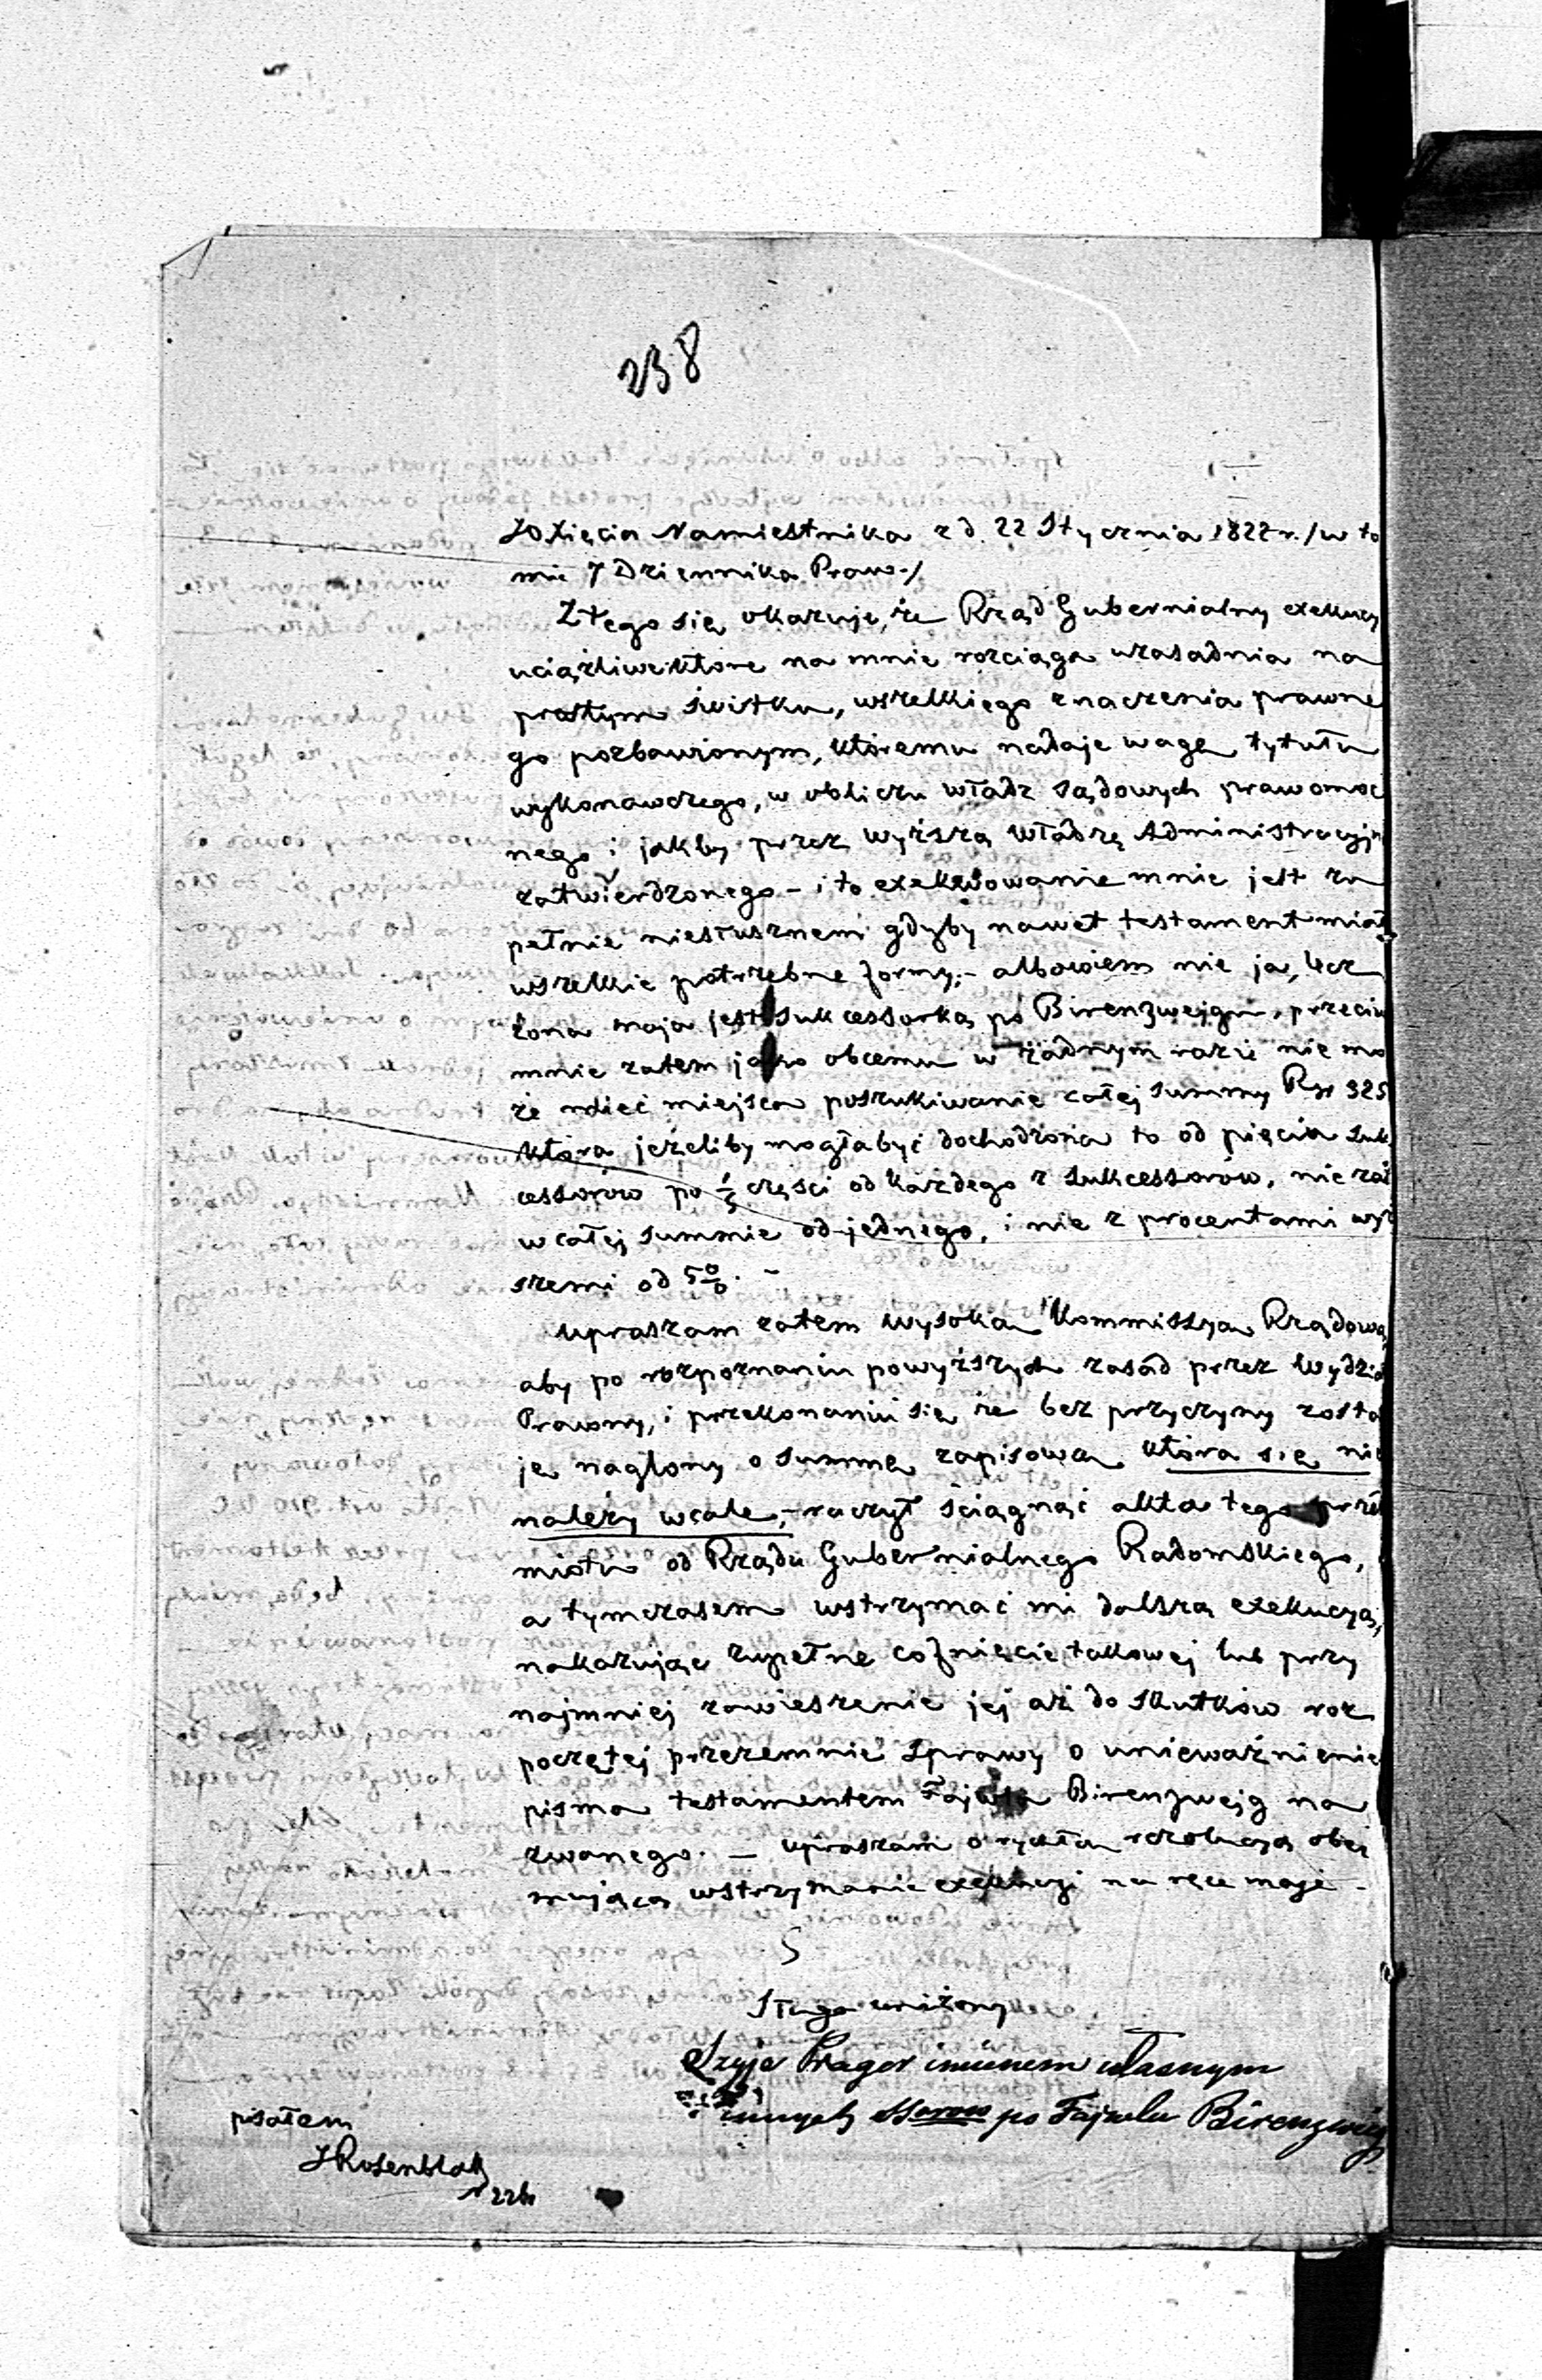 238
JO Xięcia Namiestnika z d. 22 Stycznia 1822 r. /w to
mie 7 Dziennika Praw./
Z tego się okazuje, że Rząd Gubernialny exekucy
uciążliwe które na mnie rozciąga uzasadnia na
prostym świstku, wszelkiego znaczenia prawne
go pozbawionym, któremu nadaje wagę tytułu
wykonawczego, w obliczu władz sądowych prawomoc
nego i jakby przez wyższą władzę Administracyjn
zatwierdzonego – i to exekwowanie mnie jest zu
pełnie niesłusznem gdyby nawet testament miał
wszelkie potrzebne formy; – albowiem nie ja, lecz
żona moja jest sukcessorką po Birenzwejgu, przeciw
mnie zatem jako obcemu w żadnym razie nie mo
że mieć miejsca poszukiwanie całej summy Rsr 325
która jeżeliby mogła być dochodzona to od pięciu suk
cessorów po 1/5 części od każdego z sukcessorów, nie zaś
w całej summie od jednego, i nie z procentami wyż
szemi od 5%. –
Upraszam zatem Wysoka Kommissya Rządowa
aby po rozpoznaniu powyższych zasad przez Wydzia
Prawny, i przekonaniu się że bez przyczyny zosta
ję naglony o summę zapisową która się nie
należy wcale, – raczył ściągnąć akta tego prze
miotu od Rządu Gubernialnego Radomskiego,
a tymczasem wstrzymać mi dalszą exekucyą,
nakazując zupełne cofnięcie takowej lub przy
najmniej zawieszenie jej aż do skutków roz
poczętej przezemnie sprawy o unieważnienie
pisma testamentem Fajwla Birenzwejg na
zwanego. – Upraszam o rychłą rezolucyą obej
mującą wstrzymanie exekucyi na ręce moje –
S
Sługa uniżony
Szyja Prager imienem własnym
innych SSorow po Fajwelu Birenzweig
pisałem
JRosenblatt